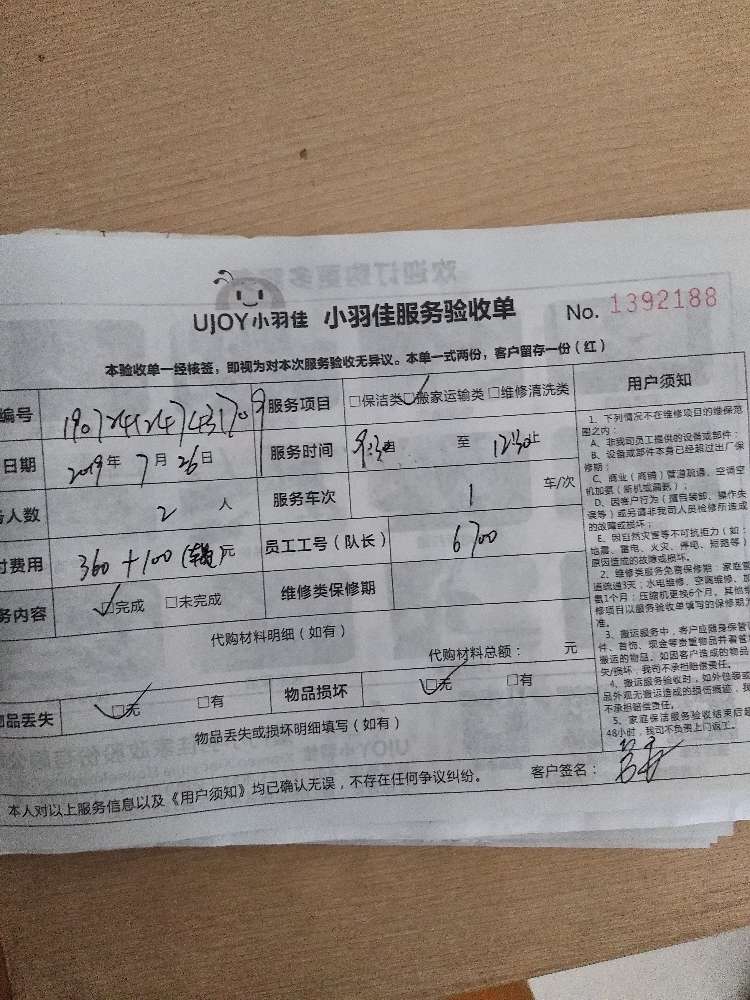 UJOY小羽佳 小羽佳服务验收单 No. 1392188
本验收单一经核签，即视为对本次服务验收无异议。本单一式两份，客户留存一份（红）
编号
服务项目 □保洁类 □搬家运输类 □维修清洗类
日期 2019年 7月 26日 服务时间 至 12:30止
人数 2 人 服务车次 1 车/次
费用 360+100 元 员工工号（队长） 6700
务内容 □完成 □未完成 维修类保修期
代购材料明细（如有） 代购材料总额： 元
品丢失 □无 □有 物品损坏 □无 □有
物品丢失或损坏明细填写（如有）
本人对以上服务信息以及《用户须知》均已确认无误，不存在任何争议纠纷。 客户签名：
用户须知
1、下列情况不在维修项目的维保范
围之内：
A、非我司员工提供的设备或部件；
B、设备或部件本身已经超过出厂保
修期；
C、商业（商铺）管道疏通、空调空
机加氨（新机或漏氨）；
D、因客户行为（擅自装卸、操作失
误等）或另请非我司人员检修所造成
的故障或损坏；
E、因自然灾害等不可抗拒力（如：
地震、雷电、火灾、停电、短路等）
原因造成的故障或损坏。
2、维修类服务免费保修期：家庭管
道疏通3天；水电维修、空调维修、加
氨1个月；压缩机更换6个月，其他维
修项目以服务验收单填写的保修期为
准。
3、搬运服务中，客户应随身保管证
件、首饰、现金等贵重物品并看管
搬运的物品。如因客户造成的物品
失/损坏，我司不承担赔偿责任。
4、搬运服务验收时，如外包装或
品外观无搬运造成的损伤痕迹，我
不承担赔偿责任。
5、家庭保洁服务验收结束后超
48小时，我司不负责上门返工。